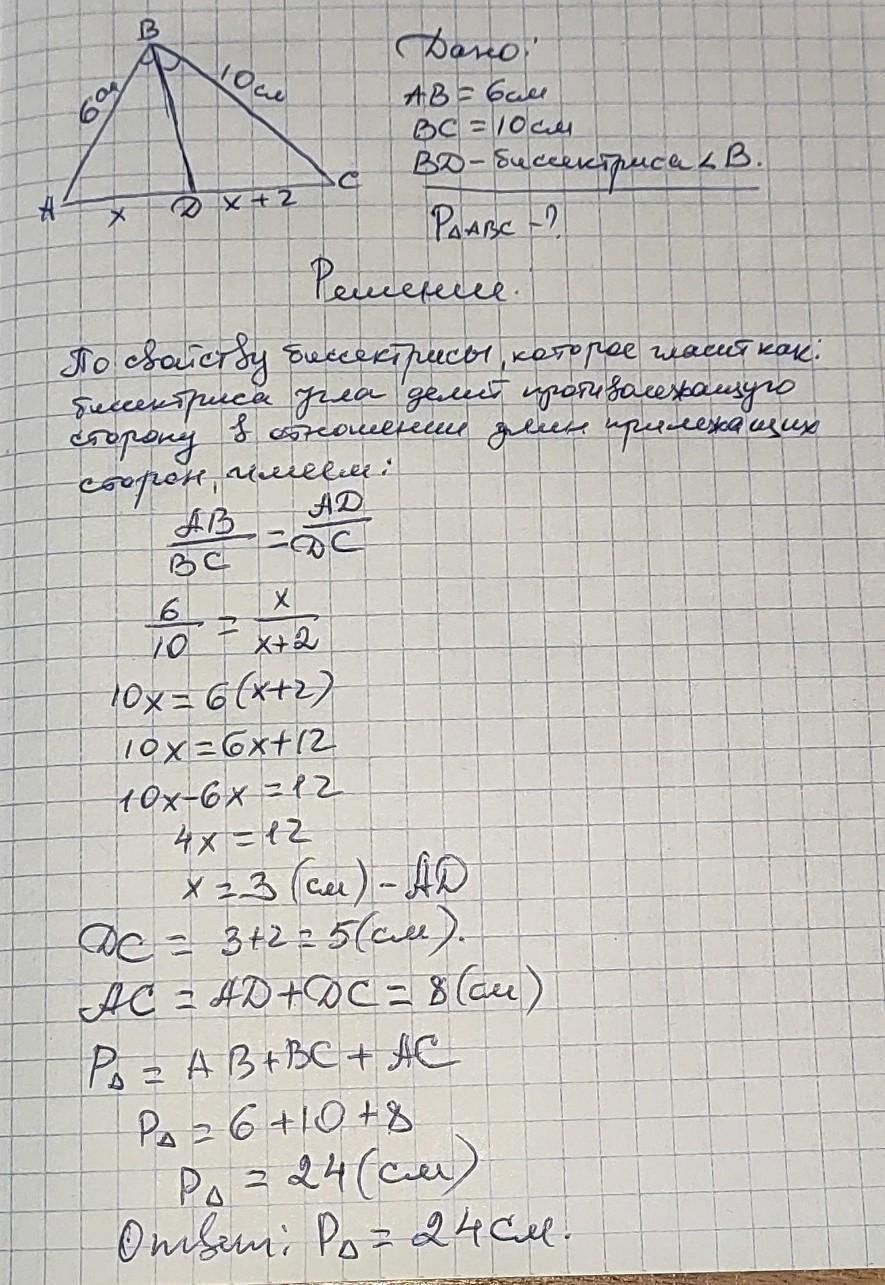 B
6см
10см
A
x
D
x+2
C
Дано:
AB = 6см
BC = 10см
BD – биссектриса ∠B.
P△ABC – ?
Решение.
По свойству биссектрисы, которое гласит как:
биссектриса угла делит противолежащую
сторону в отношении длин прилежащих
сторон, имеем:
AB/BC = AD/DC
6/10 = x/x+2
10x = 6(x+2)
10x = 6x+12
10x-6x = 12
4x = 12
x = 3 (см) – AD
DC = 3+2 = 5(см).
AC = AD+DC = 8(см)
P△ = AB+BC+AC
P△ = 6+10+8
P△ = 24(см)
Ответ: P△ = 24см.